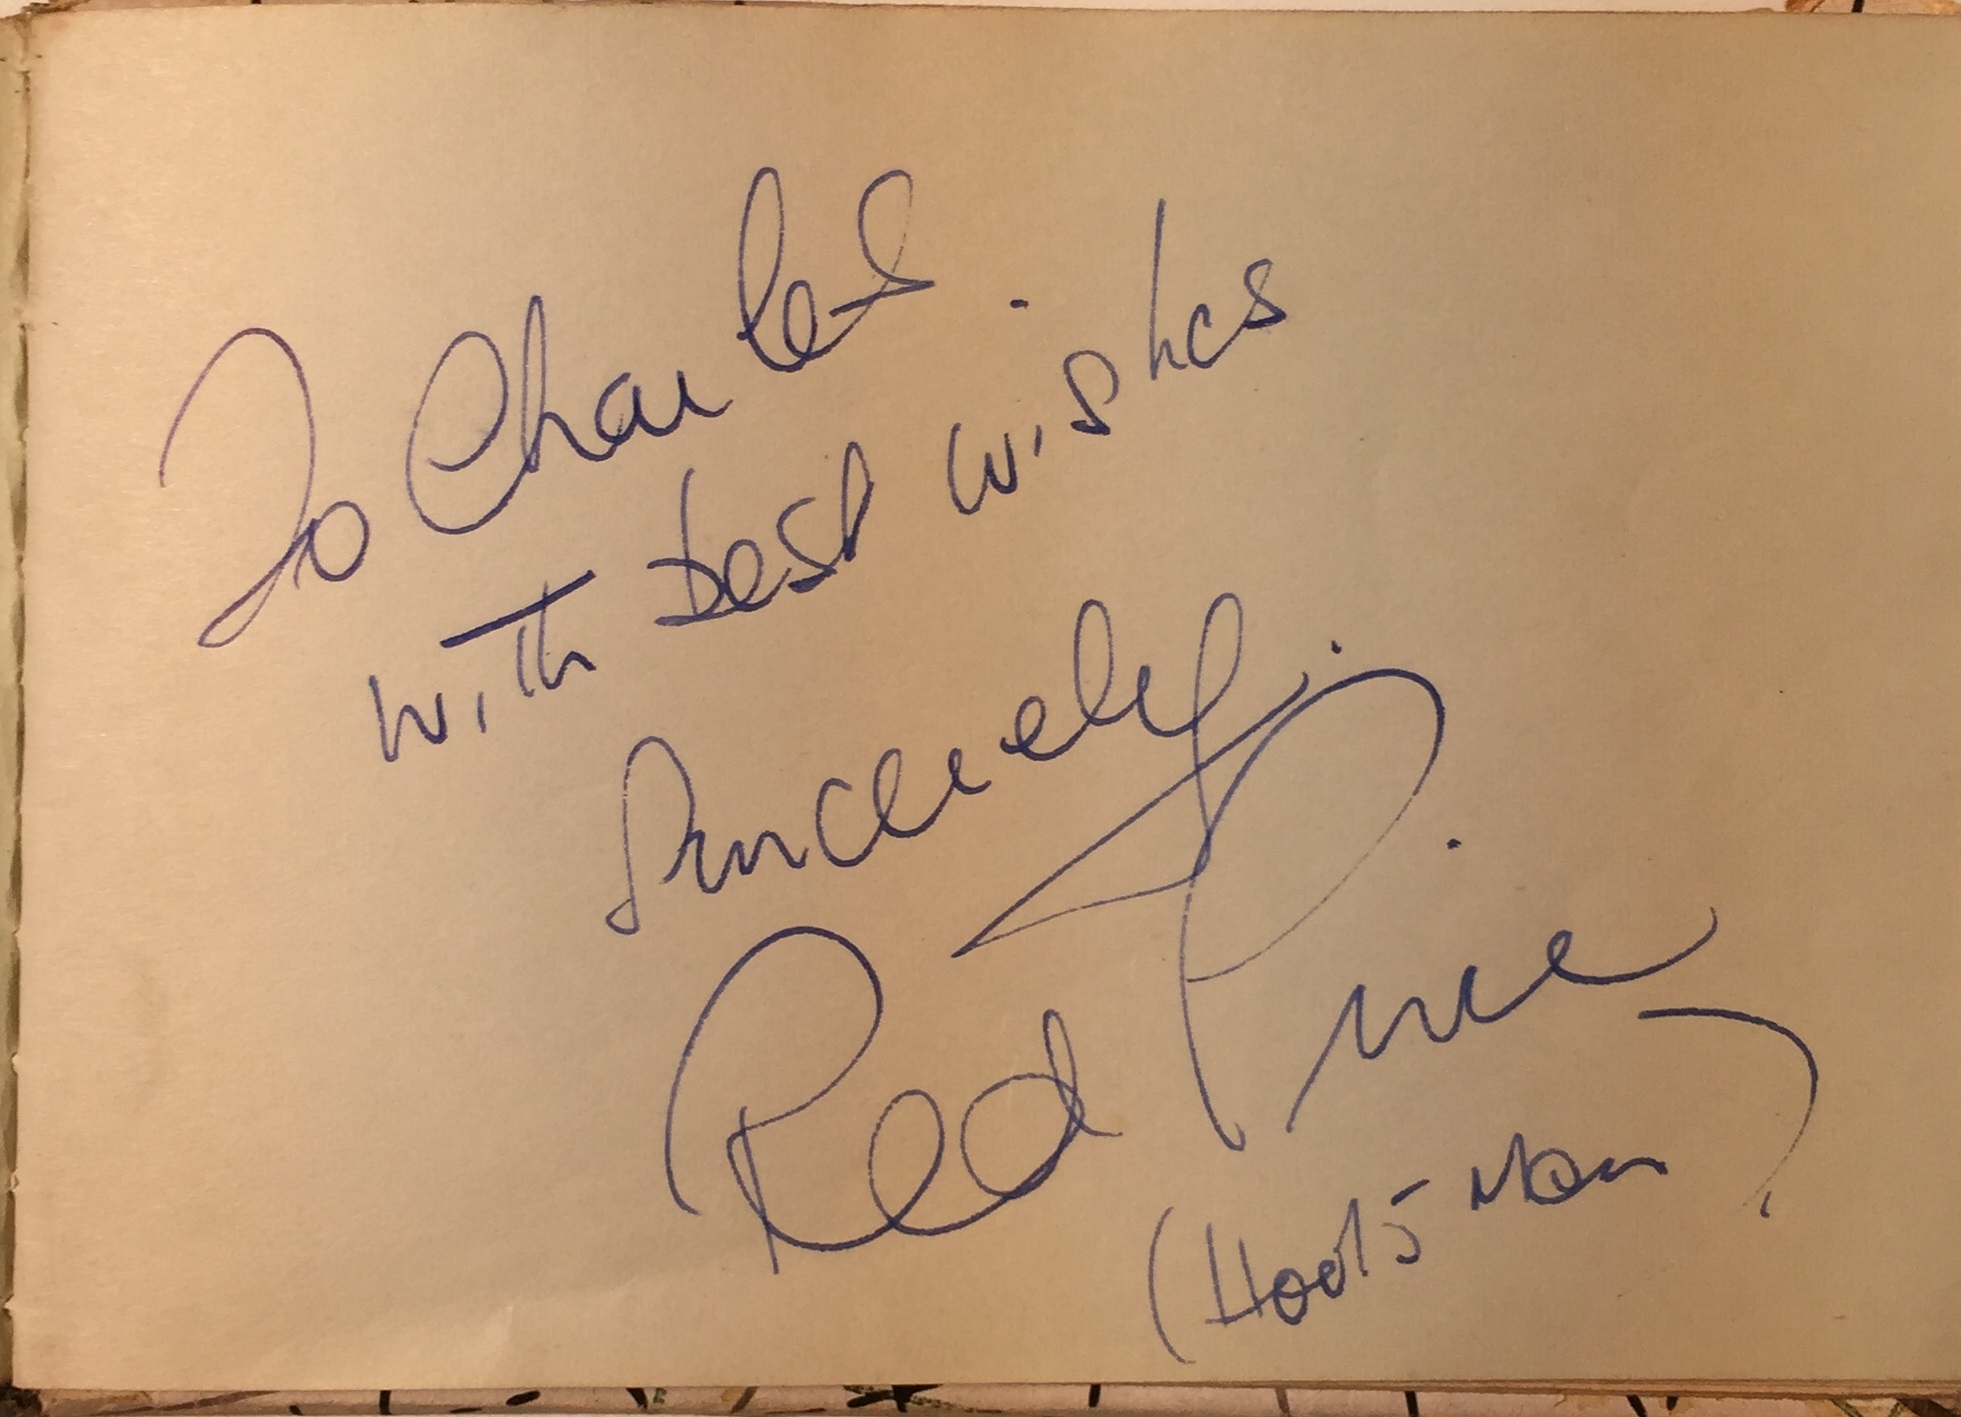 To Charles.
with best wishes
Sincerely.
Red Price
(Hoots Mon)